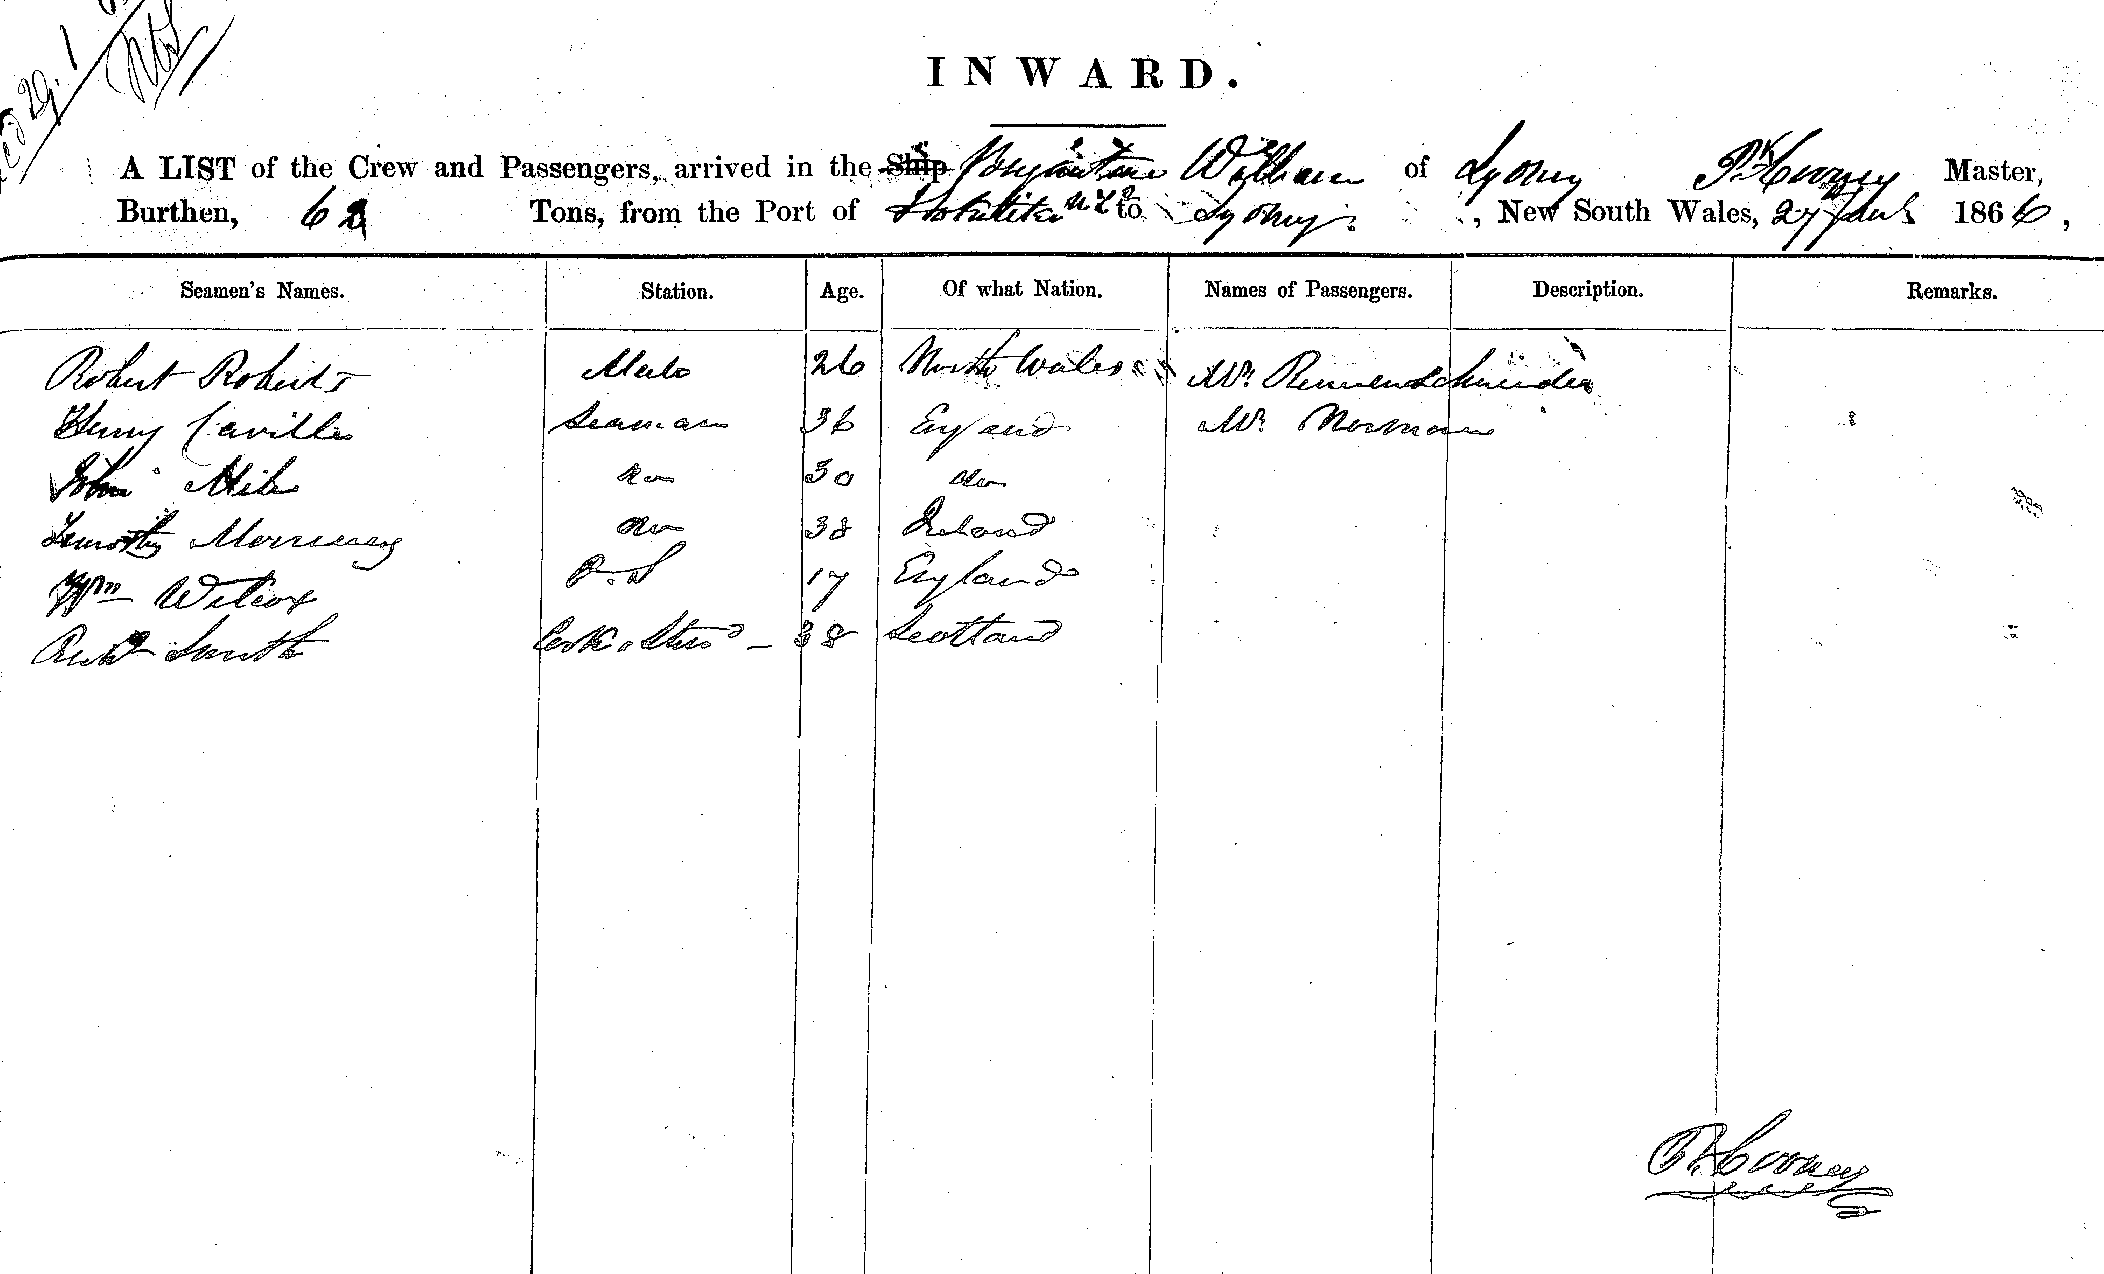 INWARD.
A LIST of the Crew and Passengers, arrived in the Ship Brigantine William of Sydney Pk Cooney Master,
Burthen, 62 Tons, from the Port of Hokitika NZ to Sydney. , New South Wales, 27 Jany 1866,
Seamen's Names. Station. Age. Of what Nation. Names of Passengers. Description. Remarks.
Robert Roberts Mate 26 North Wales Mr. Rennenschneider
Henry Caville Seaman 36 England Mr. Norman
John Mile do 30 do
Timothy Morrissey do 38 Ireland
Wm Wilcox O.S 17 England
Robt Smith Cook & Stewd - 38 Scotland
Pk Cooney